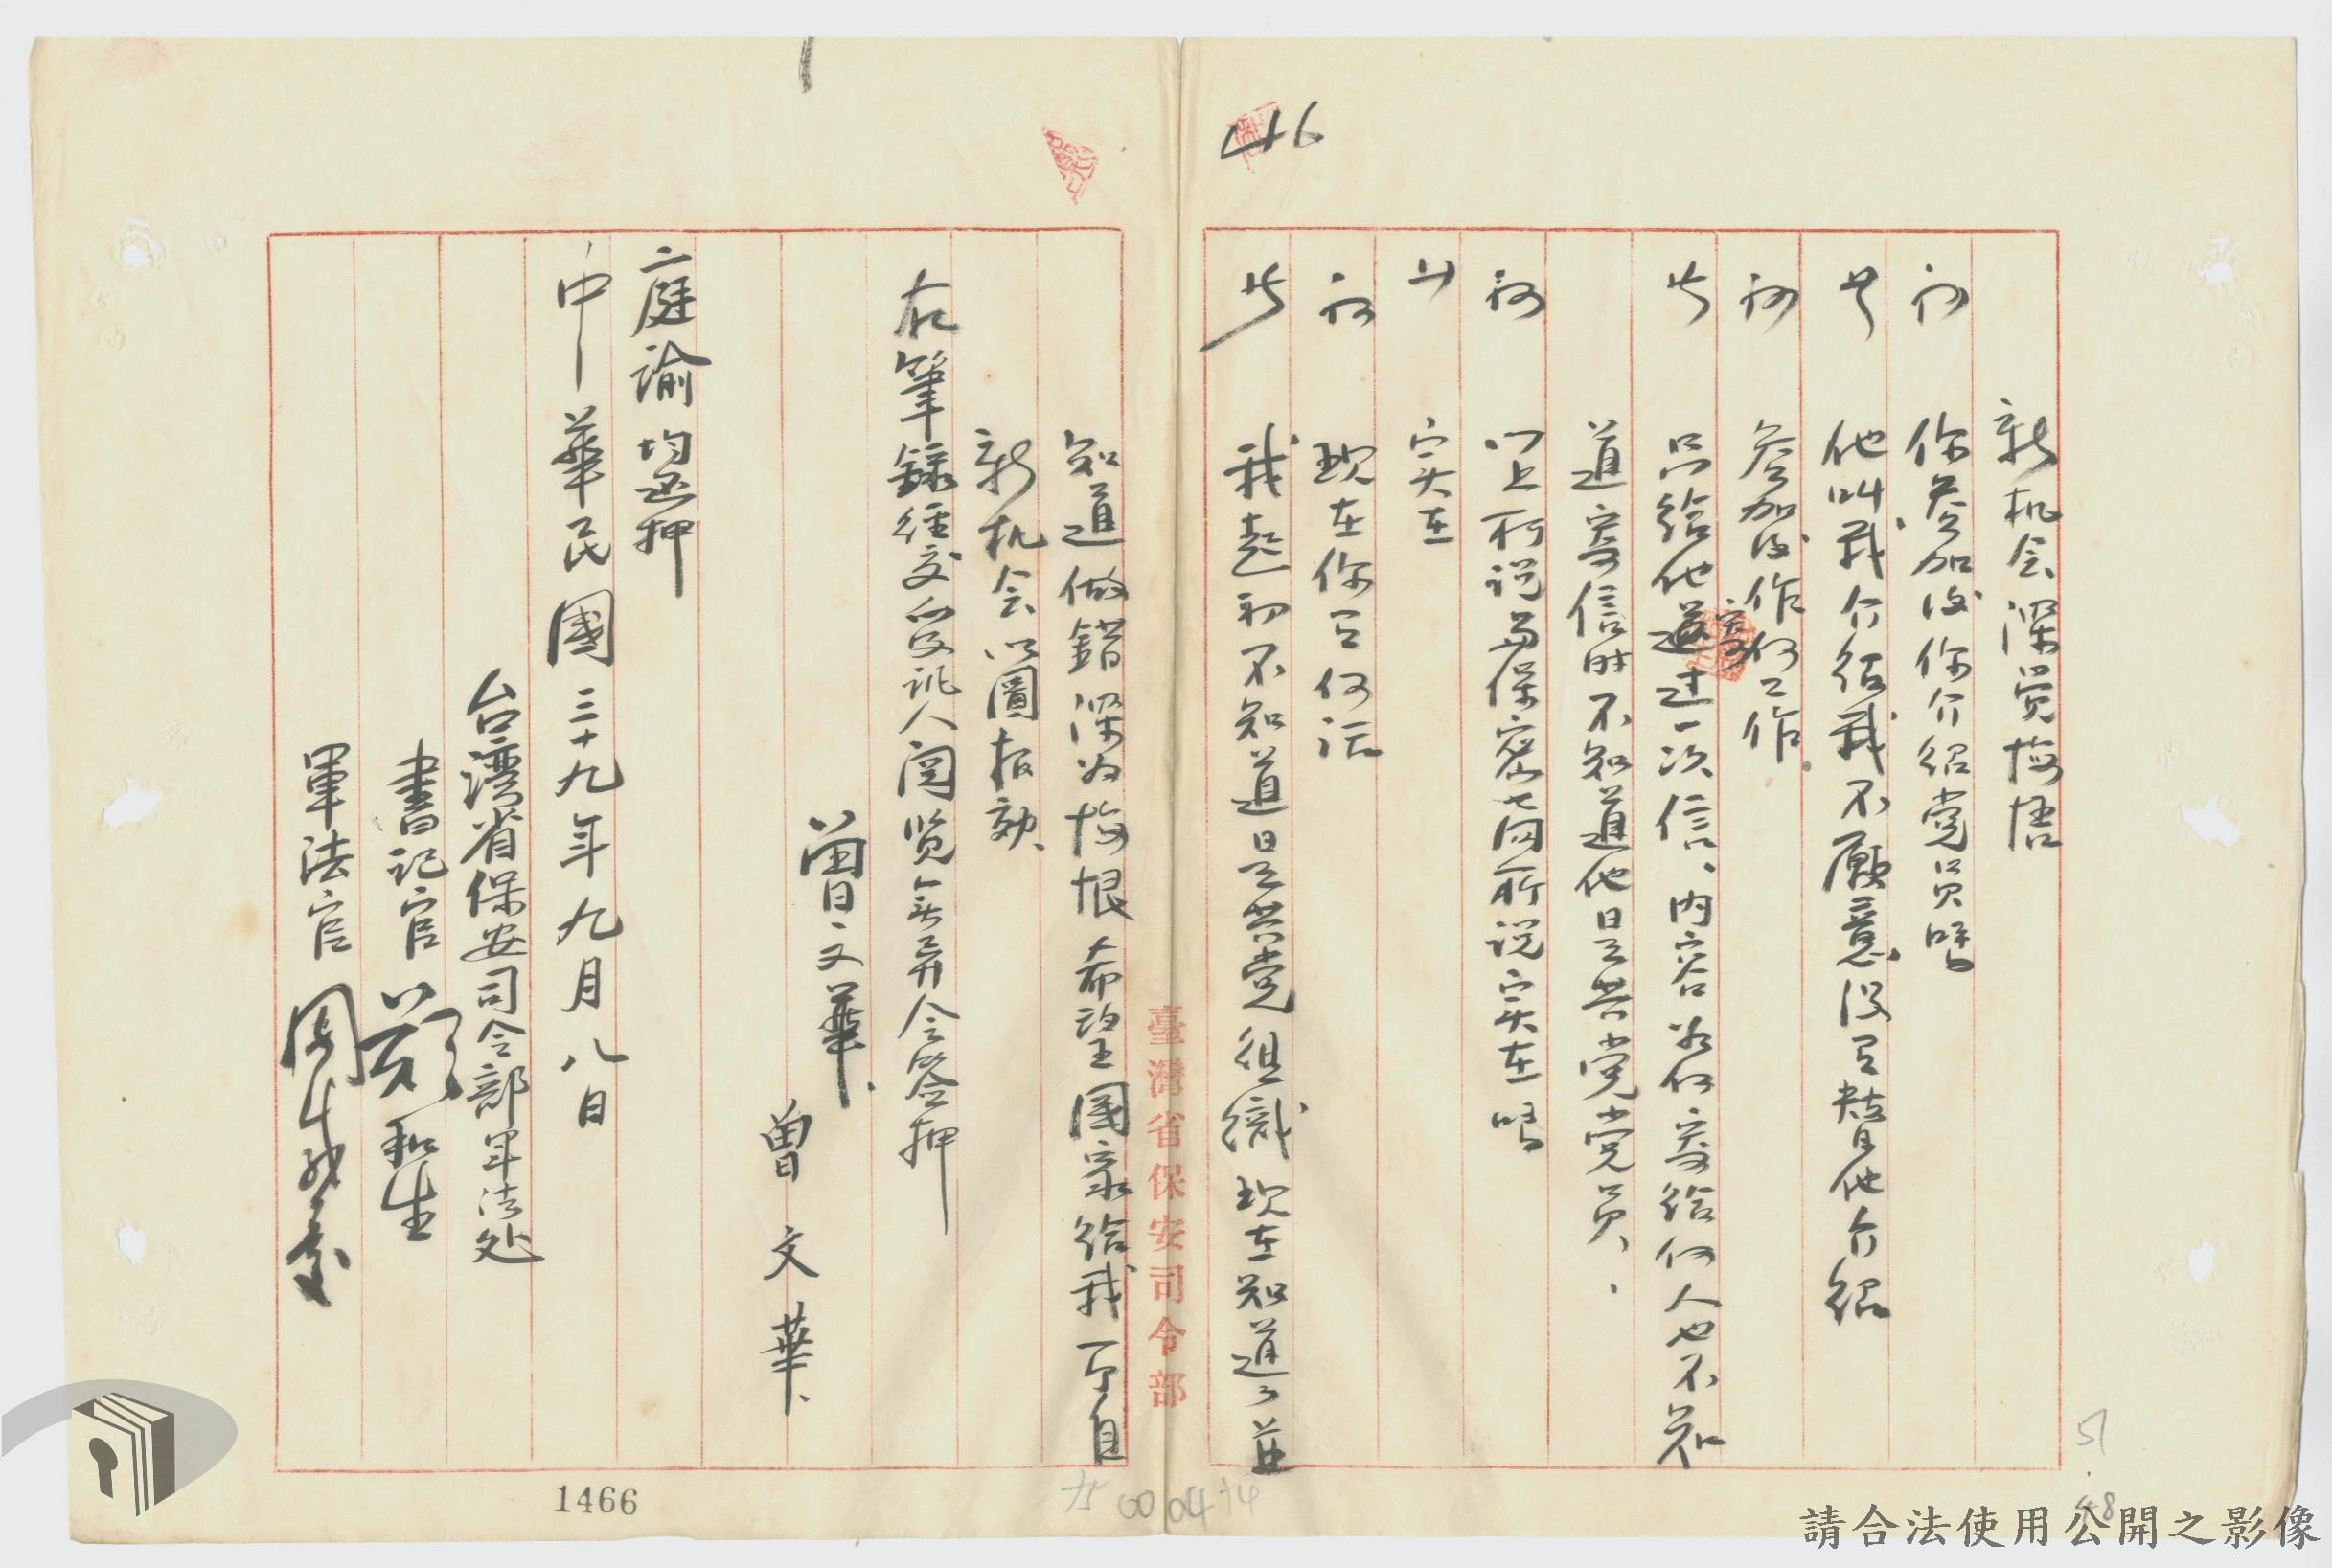 46
新机会深覚悔悟
問 你參加後你介绍党员嗎
答 他叫我介绍我不願意没有替他介紹
問 參加後作何工作
答 只給他寄过一次信、内容如何寄給何人也不知
道寄信时不知道他是共党党员、
問 以上所说与保密局所说实在嗎
答 实在
問 現在你有何话
答 我起初不知道是共党组織現在知道了並
知道做錯深为悔恨希望國家給我一个自
新机会以圖报効、
右筆録经交被訊人閲览無異令签押
曾文華、
曾文華、
庭諭均还押
中華民國三十九年九月八日
台湾省保安司令部军法处
書記官 鄭和生
軍法官 周
臺灣省保安司令部
1466
51
48
請合法使用公開之影像